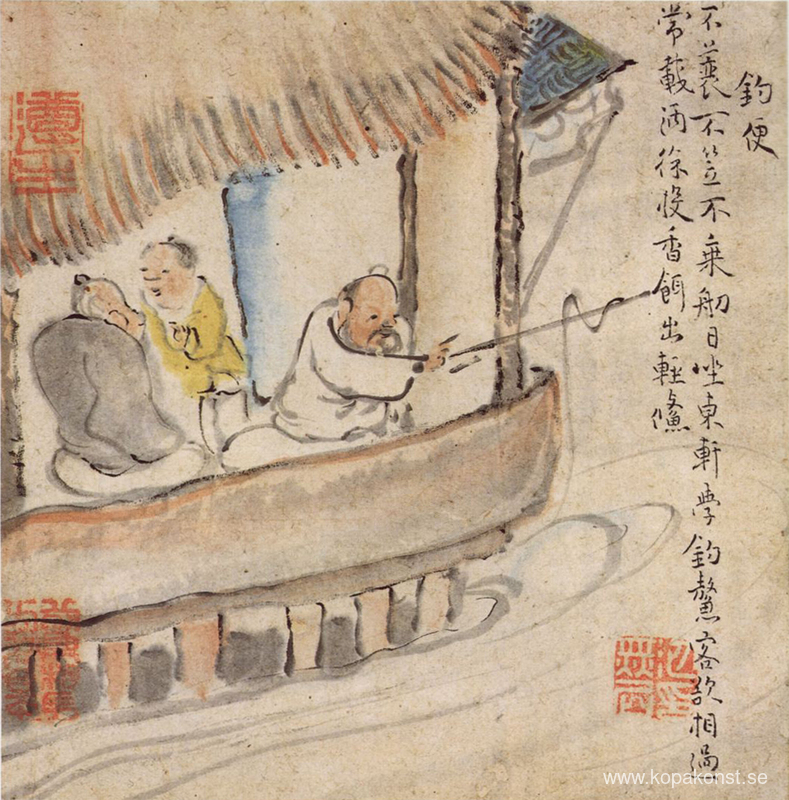 釣便
不蓑不笠不乘舠日坐東軒學釣鰲客欲相過
常載酒徐投香餌出輕鯈
www.kopakonst.se